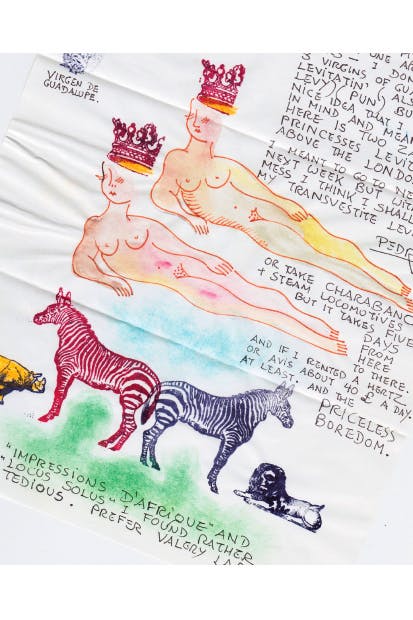 VIRGEN DE
GUADALUPE.
I DON
S VIRGINS OF GU
LEVITATIN' (ALL
LEVY) (PUN) BU
NICE IDEA THAT I
IN MIND AND MEAN
HERE IS TWO Z
PRINCESSES LEVIT
ABOVE THE LONDO
I MEANT TO GO NE
NEXT WEEK BUT WITH
MESS I THINK I SHALL
MY TRANSVESTITE LEV
PEDR
OR TAKE CHARABANC
+ STEAM LOCOMOTIVES
BUT IT TAKES FIVE
DAYS
FROM
HERE
TO THERE.
AND IF I RENTED A HERTZ
OR AVIS ABOUT 40 £ A DAY
AT LEAST, AND THE
PRICELESS
BOREDOM.
"IMPRESSIONS D'AFRIQUE" AND
"LOCUS SOLUS" I FOUND RATHER
TEDIOUS. PREFER VALERY LAR